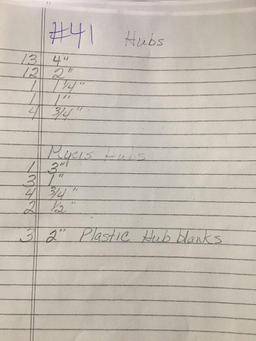 #41 Hubs
13 4"
12 2"
1 1 1/4"
1 1"
4 3/4"
1 3"
3 1"
4 3/4"
2 1/2"
3 2" Plastic Hub blanks